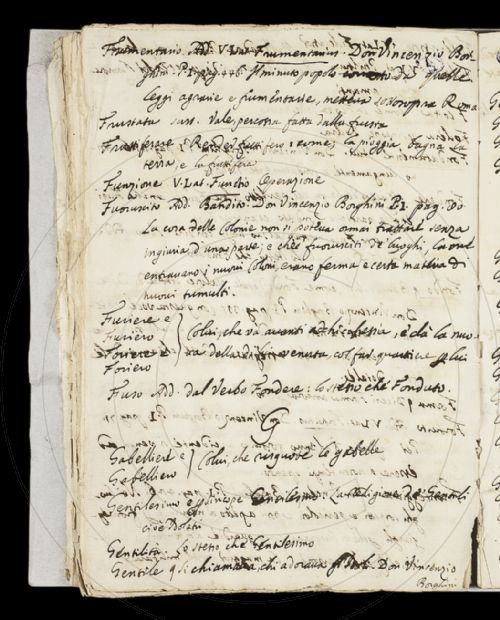 Frumentario Add. V. Lat. Frumentarius. Don Vincenzio Bor
ghini P. I. pag. 446. Il minuto popolo de quelle
leggi agrarie e frumentarie, metteva sottosopra Roma
Frustata sust. Vale percossa fatta dalla frusta
Fruttifere Render fruttifero; la pioggia bagna la
terra, e la fruttifera
Funzione V. Lat. Functio Operazione
Fuoruscito Add. Bandito Don Vincenzio Borghini P. I. pag.
La cosa delle Colonie non si poteva ormai trattare senza
ingiuria d'una parte; e che i fuorusciti de luoghi, la ove
entravano i nuovi Coloni, erano ferma e certa materia di
nuovi tumulti.
Furiere e
Furiero
Foriere e
Foriero
Colui, che va avanti a chicchessia, e dà la nuo-
va della di lui venuta, col far quartiere p lui
Fuso Add. dal Verbo Fondere: lo stesso che Fonduto.
G
Gabelliere e
Gabelliero
Colui, che riscuote le gabelle
Gentilesimo e Gentilesmo. La religione de Gentili
cioè Idolatri
Gentilità. Lo stesso che Gentilesimo
Gentile si chiamava, chi adorava Don Vincenzio
Borghini